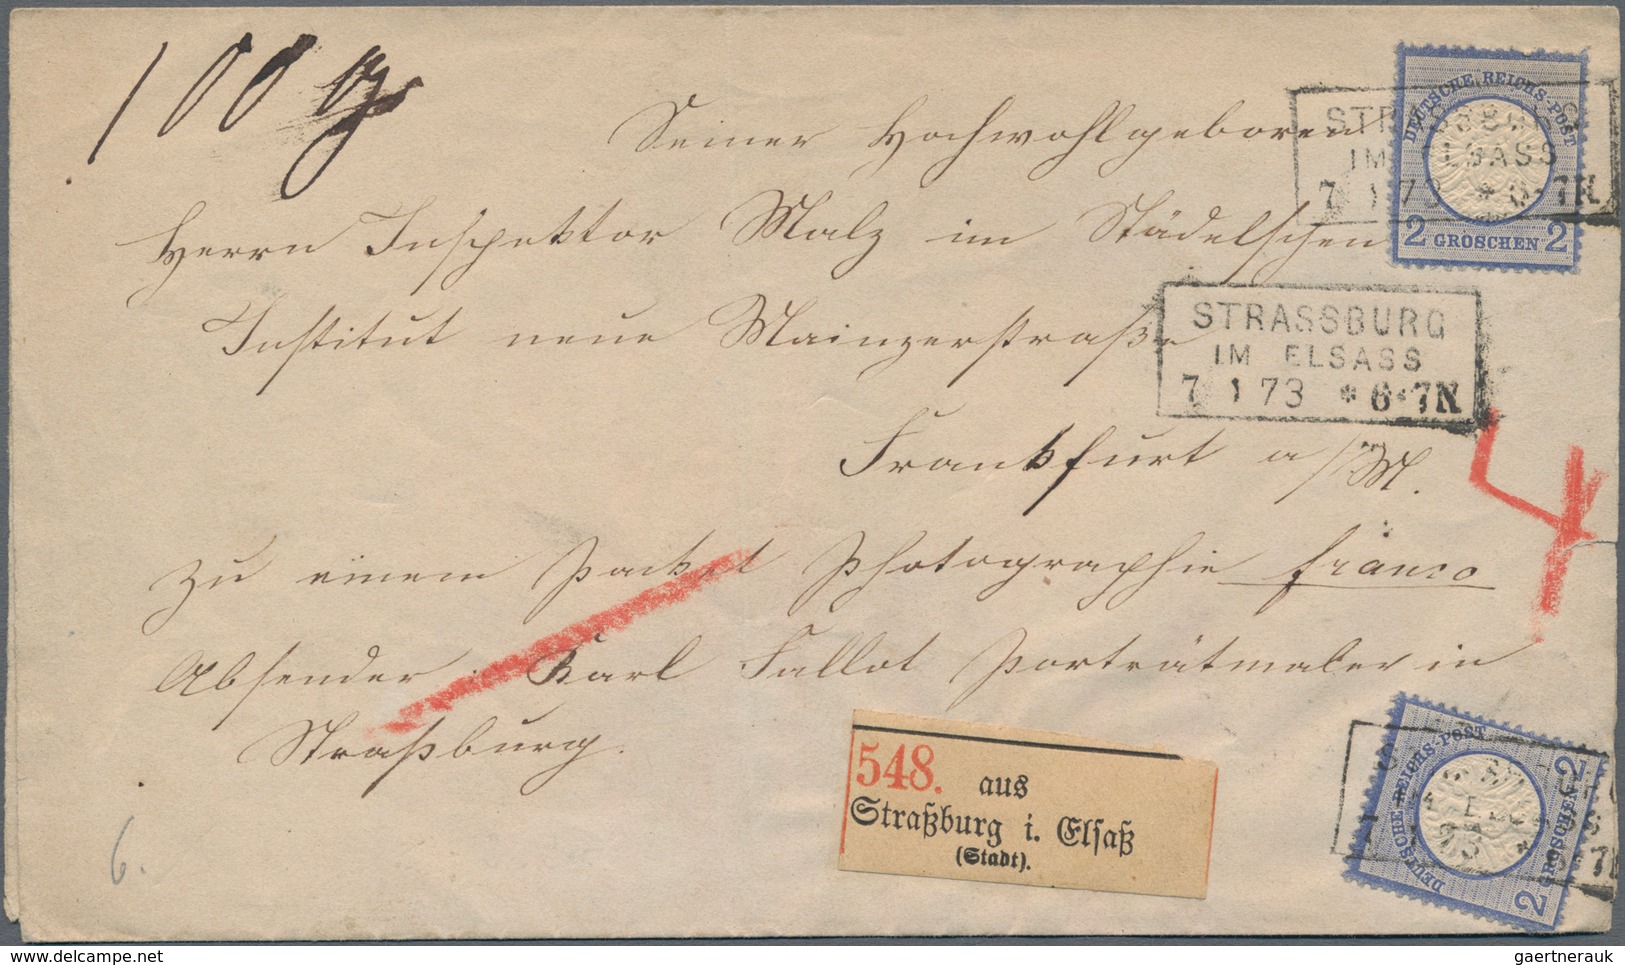 100 g
DEUTSCHE REICHS-POST
2 GROSCHEN 2
IM ELSASS
7 1 73 * 6-7N
Seiner Hochwohlgeboren
Herrn Inspektor Malz im Städelschen
Institut neue Mainzerstraße
STRASSBURG
IM ELSASS
7 1 73 * 6-7N
Frankfurt a/M.
4
zu einem Packet Photographie franco
Absender: Karl Fallot Porträtmaler in
Straßburg.
548. aus
Straßburg i. Elsaß
(Stadt).
DEUTSCHE REICHS-POST
2 GROSCHEN 2
6.
www.delcampe.net
gaertnerauk